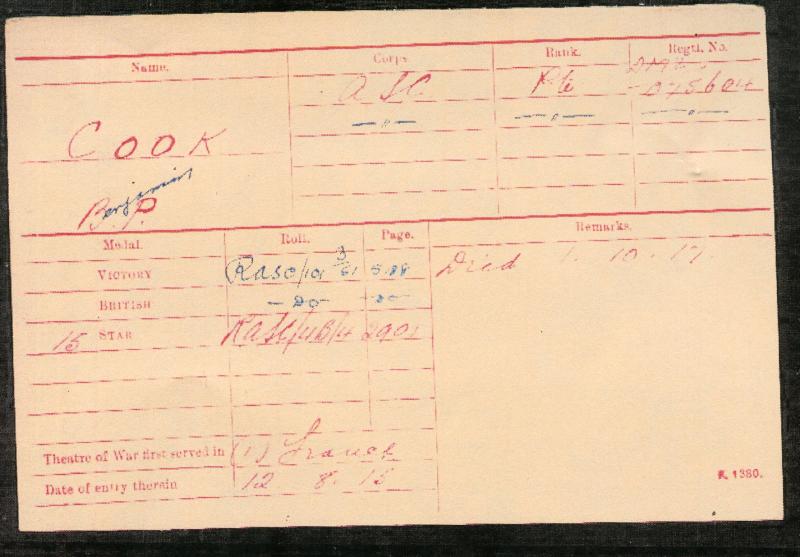 Name. Corps. Rank. Regtl. No.
COOK ASC. Pte DM2
075604
—"— —"— —"—
Benjamin
B. P.
Medal. Roll. Page. Remarks.
VICTORY RASC/101 B 61 Died 1. 10. 17.
BRITISH —Do— Do
15 STAR RASC/4B/4 2901
Theatre of War first served in (1) France
Date of entry therein 12 8. 15
K. 1380.